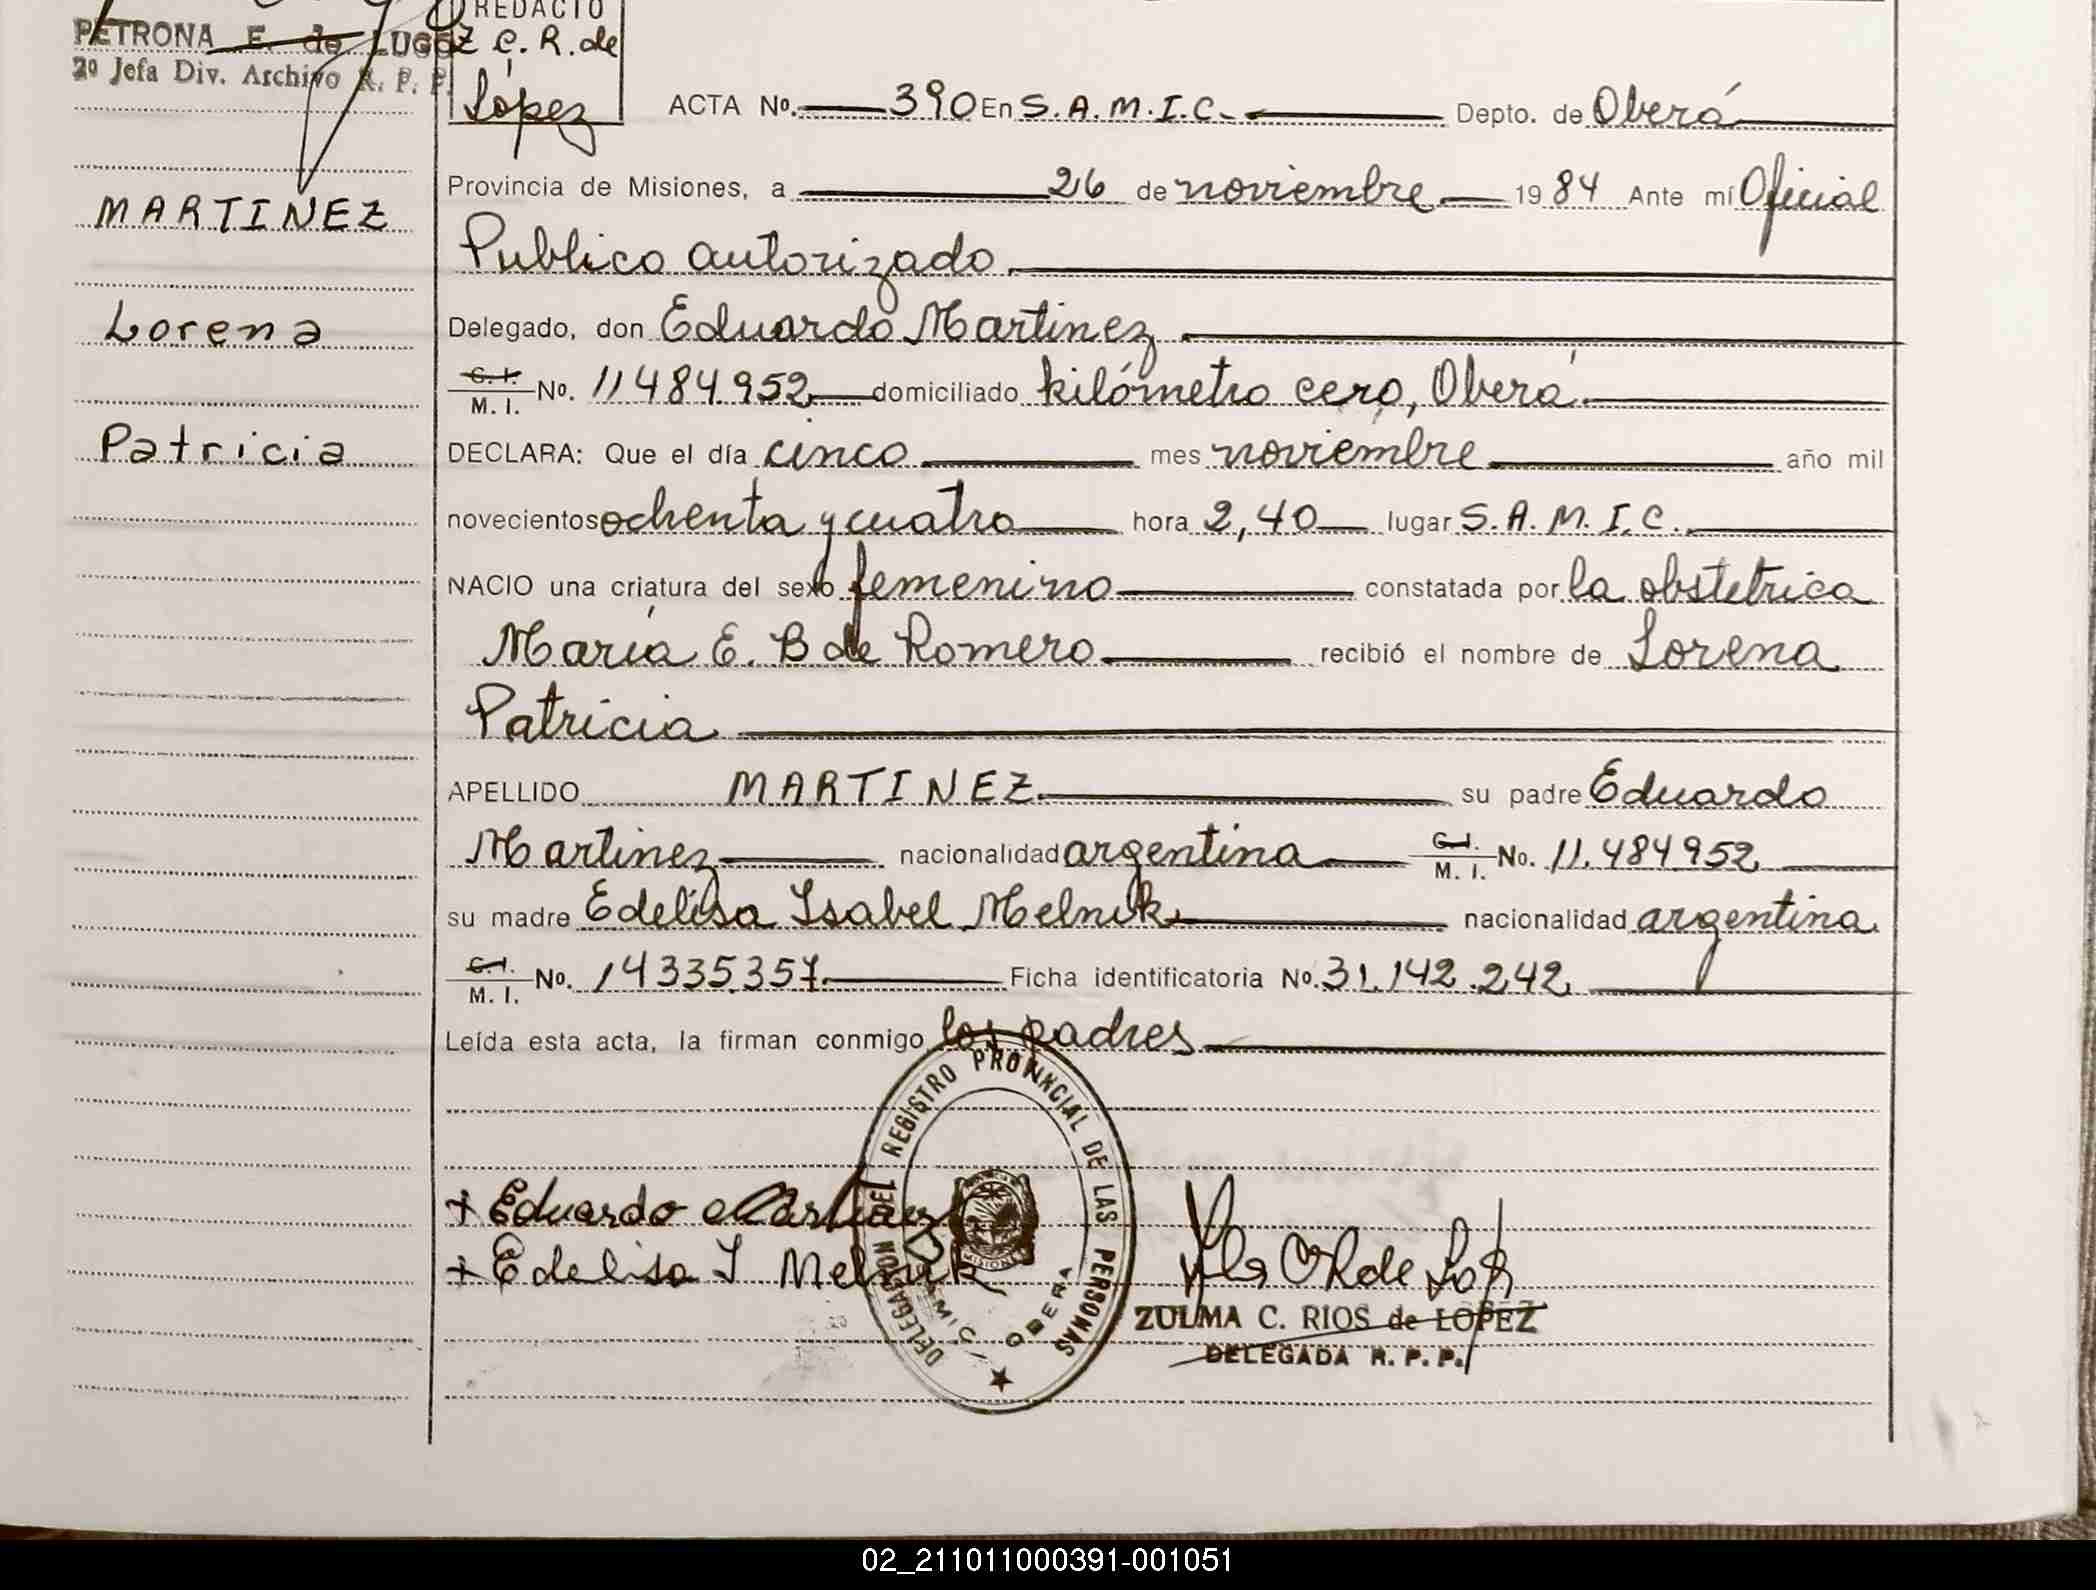 REDACTO
PETRONA E. de LUGO
Z. C. R. de
2º Jefa Div. Archivo R. P. P.
López
ACTA No. 390 En S.A.M.I.C. Depto. de Oberá
Provincia de Misiones, a 26 de noviembre 1984 Ante mí Oficial
MARTINEZ
Publico autorizado
Lorena
Delegado, don Eduardo Martinez
C. I. M. I. No. 11484952 domiciliado kilómetro cero, Oberá
Patricia
DECLARA: Que el día cinco mes noviembre año mil
novecientos ochenta y cuatro hora 2,40 lugar S.A.M.I.C.
NACIO una criatura del sexo femenino constatada por la obstetrica
María E. B de Romero recibió el nombre de Lorena
Patricia
APELLIDO MARTINEZ su padre Eduardo
Martinez nacionalidad argentina C. I. M. I. No. 11.484952
su madre Edelisa Isabel Melnik nacionalidad argentina
C. I. M. I. No. 14335.357 Ficha identificatoria No. 31.142.242
Leída esta acta, la firman conmigo los padres
DELEGACION DEL REGISTRO PROVINCIAL DE LAS PERSONAS
MISIONES
SAMIC OBERA
+ Eduardo Martinez
+ Edelisa I Melnik
ZULMA C. RIOS de LOPEZ
DELEGADA R. P. P.
02_211011000391-001051